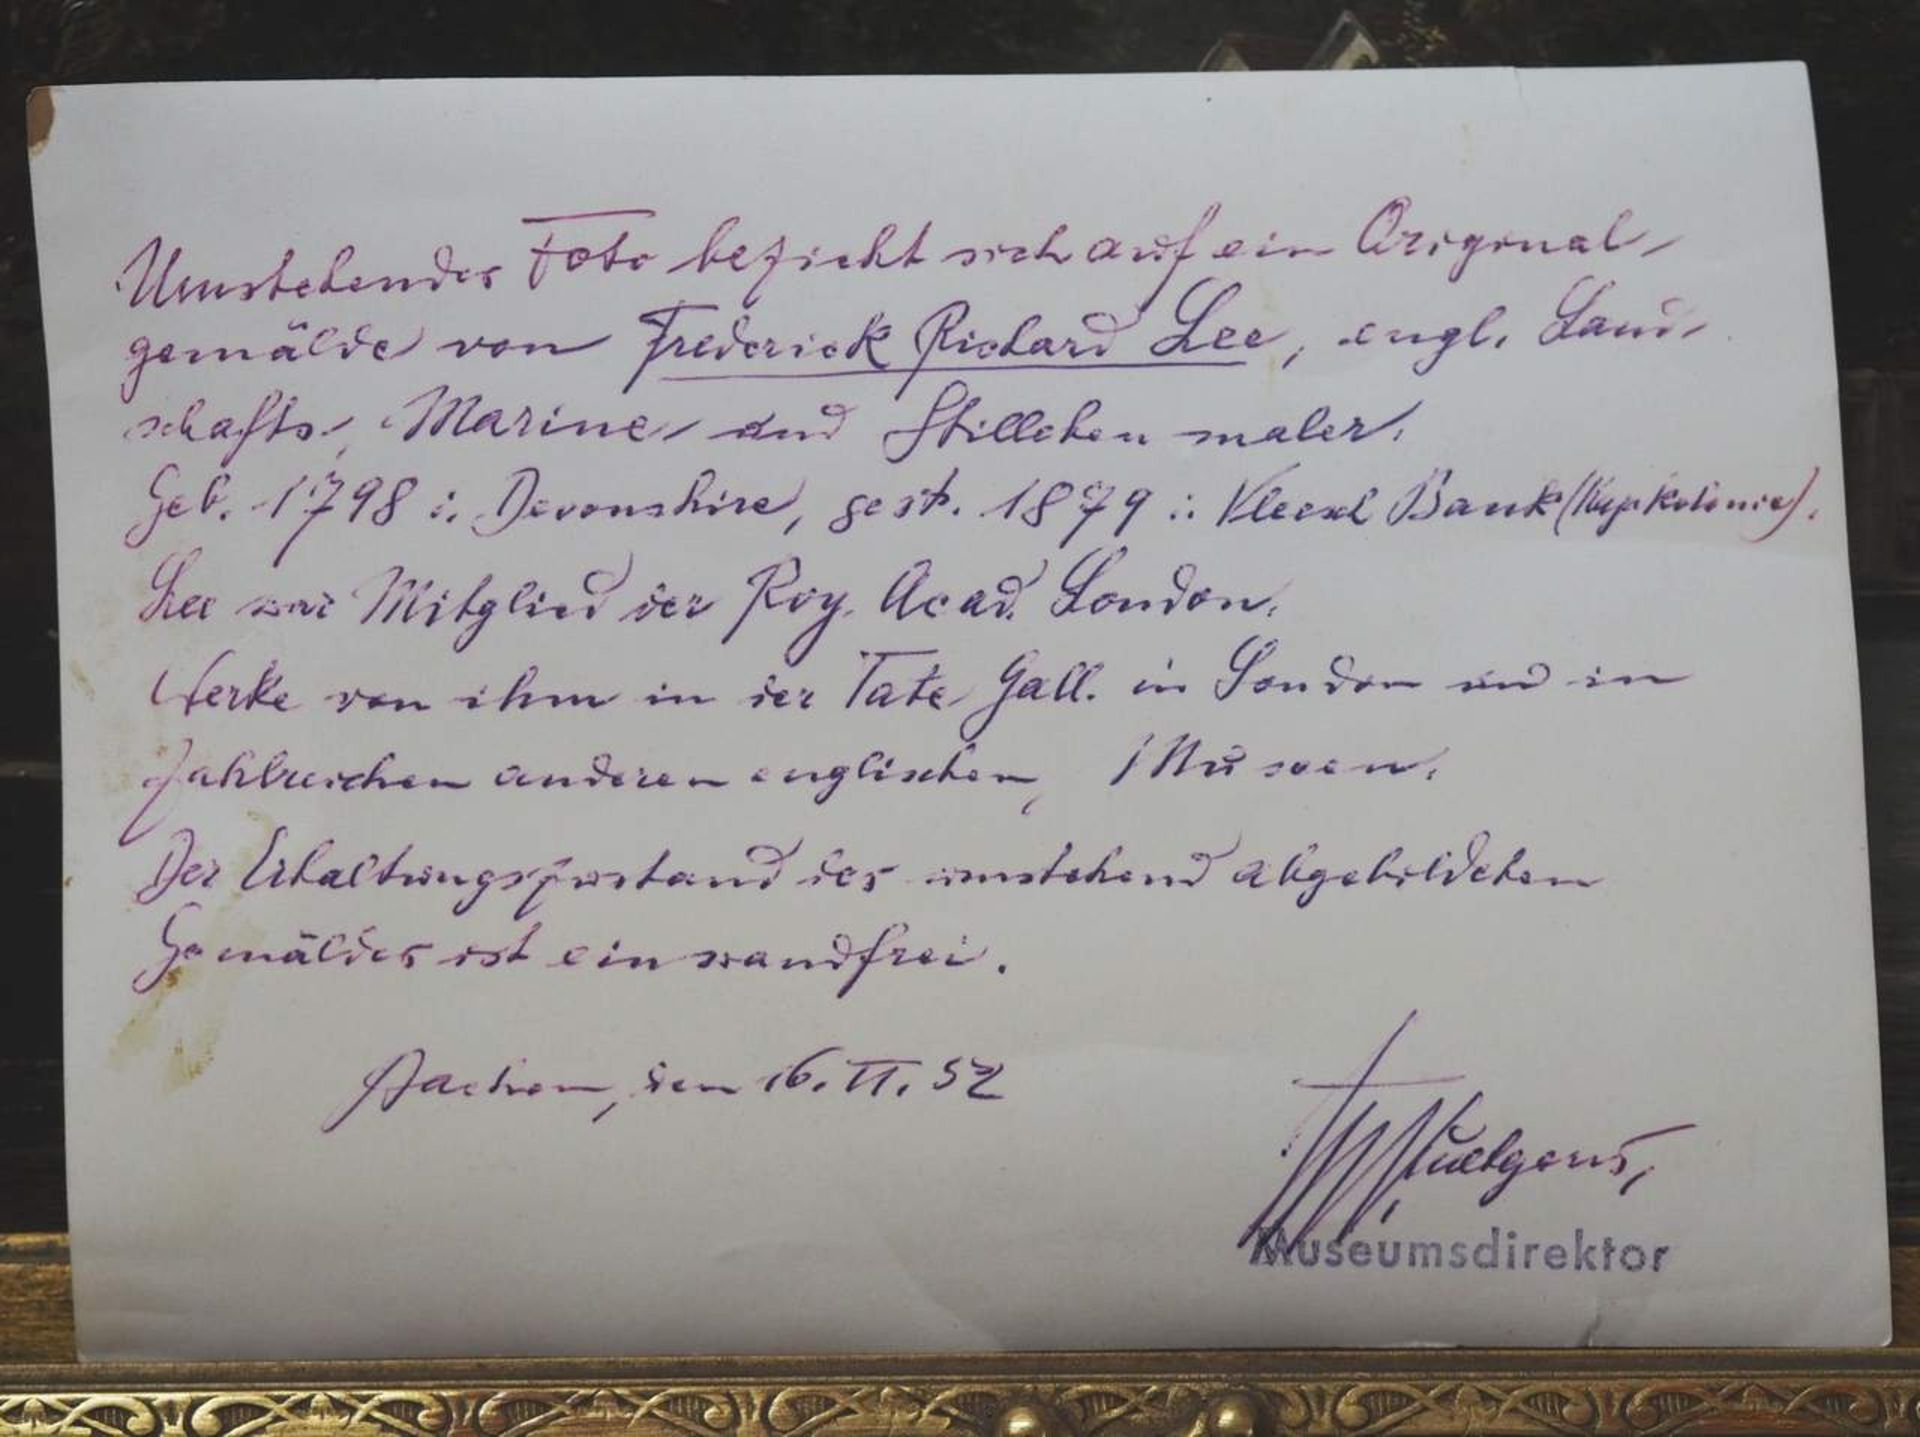 Umstehendes Foto bezieht sich auf ein Original-
gemälde von Frederick Richard Lee, engl. Land-
schafts-, Marine- und Stilleben maler.
Geb. 1798 i. Devonshire, gest. 1879 i. Vleesch Bank (Kapkolonie).
Lee war Mitglied der Roy. Acad. London.
Werke von ihm in der Tate Gall. in London und in
zahlreichen anderen englischen Museen.
Der Erhaltungszustand des umstehend abgebildeten
Gemäldes ist einwandfrei.
Aachen, den 16. II. 52
Museumsdirektor